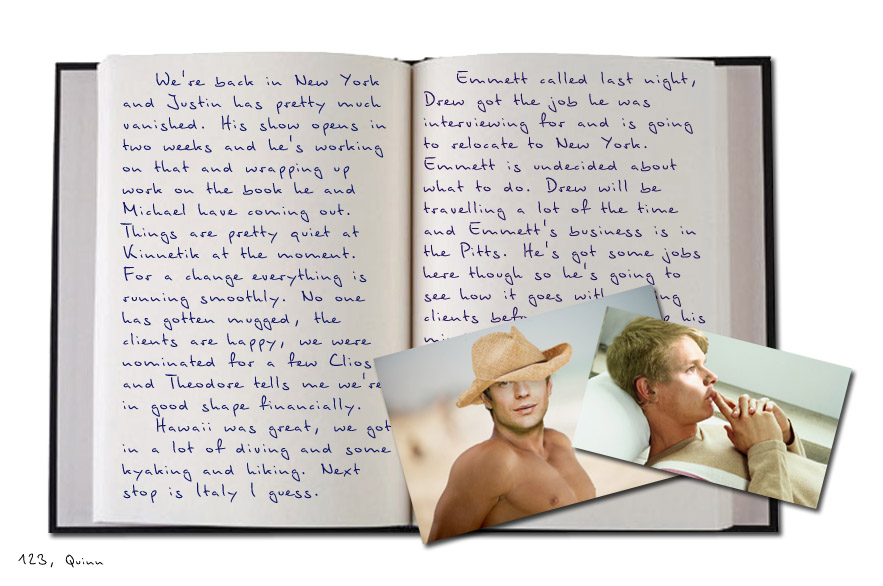 We're back in New York
and Justin has pretty much
vanished. His show opens in
two weeks and he's working
on that and wrapping up
work on the book he and
Michael have coming out.
Things are pretty quiet at
Kinnetik at the moment.
For a change everything is
running smoothly. No one
has gotten mugged, the
clients are happy, we were
nominated for a few Clios
and Theodore tells me we're
in good shape financially.
Hawaii was great, we got
in a lot of diving and some
kyaking and hiking. Next
stop is Italy I guess.
Emmett called last night,
Drew got the job he was
interviewing for and is going
to relocate to New York.
Emmett is undecided about
what to do. Drew will be
travelling a lot of the time
and Emmett's business is in
the Pitts. He's got some jobs
here though so he's going to
see how it goes
clients his
123, Quinn